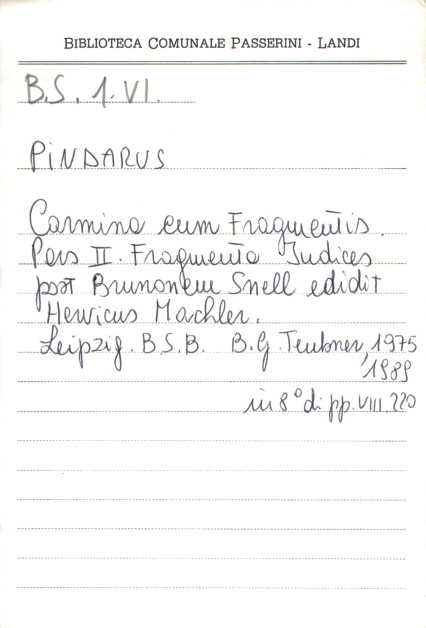 BIBLIOTECA COMUNALE PASSERINI - LANDI
B.S. 1. VI.
PINDARUS
Carmina cum Fragmentis.
Pars II. Fragmenta Indices
post Brunonem Snell edidit
Henricus Machler.
Leipzig. B.S.B. B.G. Teubner, 1975
1989
in 8° di pp. VIII. 220